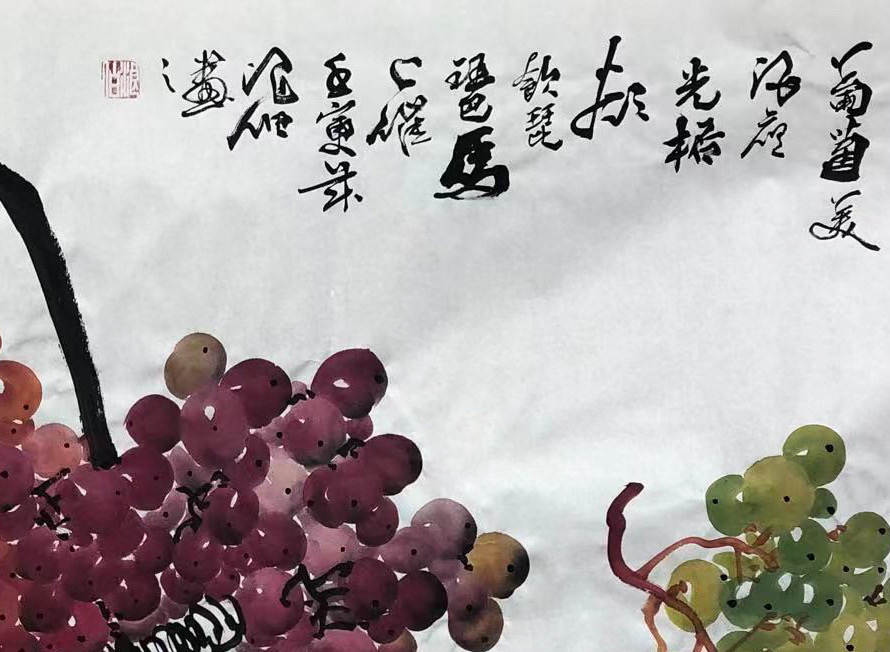 葡萄美
酒夜
光桮
欲
飲琵
琶馬
上催
壬寅
畫